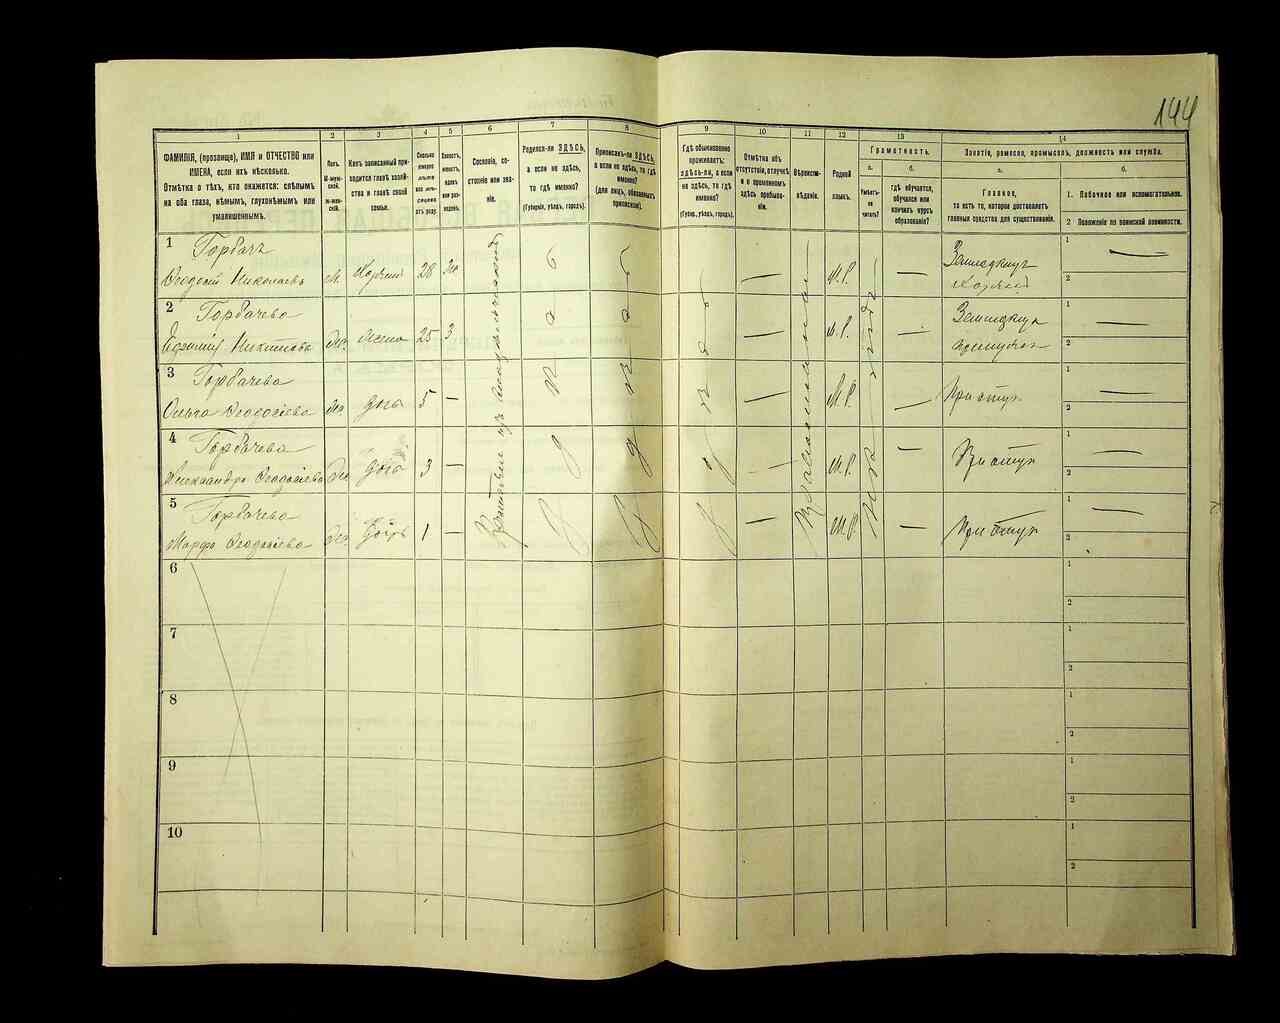 144
1
2
3
4
5
6
7
8
9
10
11
12
13
14
ФАМИЛІЯ, (прозвище), ИМЯ и ОТЧЕСТВО или
ИМЕНА, если ихъ нѣсколько.
Отмѣтка о тѣхъ, кто окажется: слѣпымъ
на оба глаза, нѣмымъ, глухонѣмымъ или
умалишеннымъ.
Полъ.
М-муж-
ской.
Ж-жен-
скій.
Какъ записанный при-
ходится главѣ хозяй-
ства и главѣ своей
семьи.
Сколько
минуло
лѣтъ
или мѣ-
сяцевъ
отъ роду.
Холостъ,
женатъ,
вдовъ
или раз-
веденъ.
Сословіе, со-
стояніе или зва-
ніе.
Родился-ли ЗДѢСЬ,
а если не здѣсь,
то гдѣ именно?
(Губернія, уѣздъ, городъ).
Приписанъ-ли ЗДѢСЬ,
а если не здѣсь, то гдѣ
именно?
(для лицъ, обязанныхъ
припискою).
Гдѣ обыкновенно
проживаетъ:
здѣсь-ли, а если
не здѣсь, то гдѣ
именно?
(Губер., уѣздъ, городъ).
Отмѣтка объ
отсутствіи, отлучкѣ
и о временномъ
здѣсь пребыва-
ніи.
Вѣроиспо-
вѣданіе.
Родной
языкъ.
Грамотность.
а.
Умѣетъ-
ли
читать?
б.
гдѣ обучается,
обучался или
кончилъ курсъ
образованія?
Занятіе, ремесло, промыселъ, должность или служба.
а.
Главное,
то есть то, которое доставляетъ
главныя средства для существованія.
б.
1. Побочное или вспомогательное.
2 Положеніе по воинской повинности.
1
Горбачъ
Ѳеодосій Николаевъ
м.
Хозяинъ
28
М.Р.
Земледѣлецъ
Хозяинъ
1
2
2
Горбачева
жен.
жена
25
3
М.Р.
1
2
3
Горбачева
Ольга Ѳеодосіева
жен
дочь
5
—
М.Р.
—
При отцѣ
1
—
2
4
Горбачева
Александра Ѳеодосіева
жен
дочь
3
—
М.Р.
—
При отцѣ
1
—
2
5
Горбачева
Марфа Ѳеодосіева
жен
дочь
1
—
М.Р.
—
При отцѣ
1
—
2
Крестьяне изъ
Православное
6
1
2
7
1
2
8
1
2
9
1
2
10
1
2